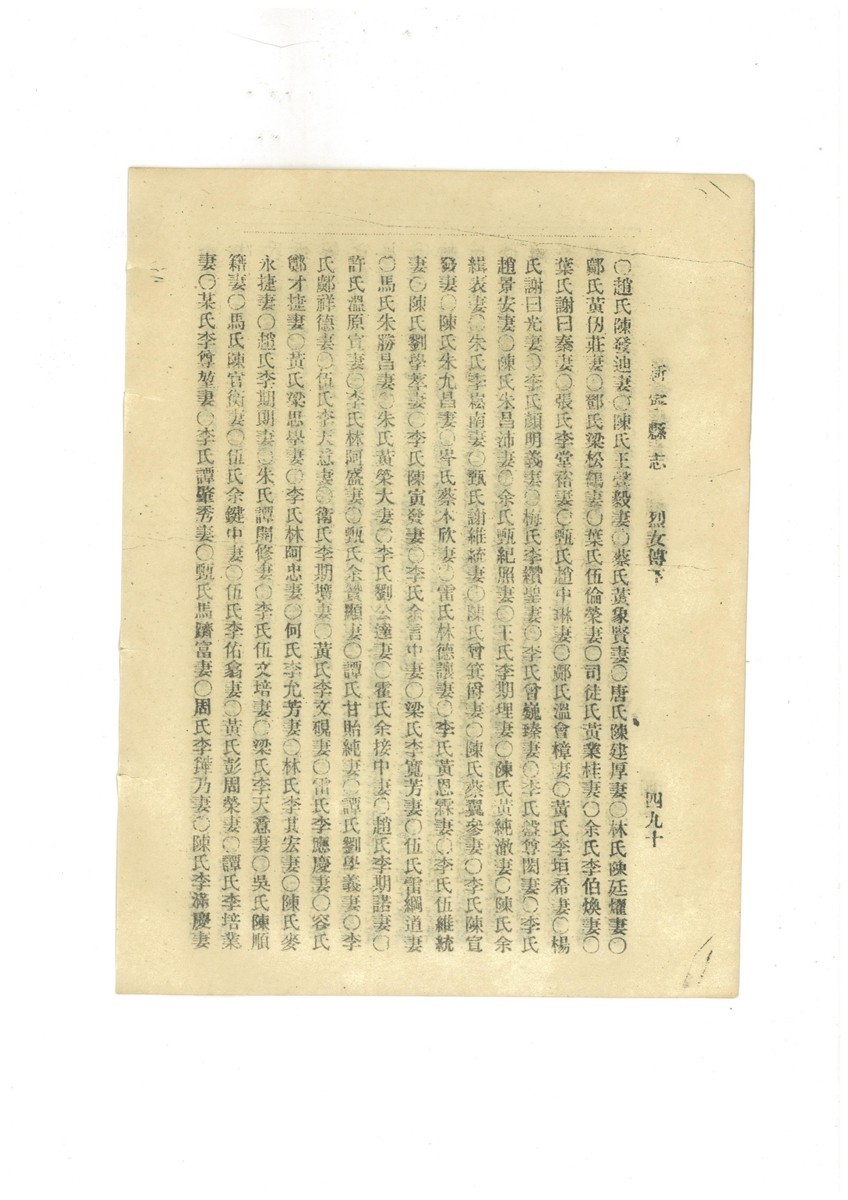 新寧縣志 烈女傳下 四九十
〇趙氏陳發迪妻〇陳氏王聲毅妻〇蔡氏黃象賢妻〇唐氏陳建厚妻〇林氏陳廷燿妻〇
鄺氏黃仭莊妻〇鄧氏梁松鶴妻〇葉氏伍倫榮妻〇司徒氏黃業桂妻〇余氏李伯煥妻〇
葉氏謝曰秦妻〇張氏李堂裔妻〇甄氏趙中琳妻〇鄺氏溫會樟妻〇黃氏李垣希妻〇楊
氏謝曰光妻〇李氏顏明義妻〇梅氏李纘妻〇李氏曾巍臻妻〇李氏尊閎妻〇李氏
趙景安妻〇陳氏朱昌沛妻〇余氏甄紀照妻〇王氏李期理妻〇陳氏黃純澈妻〇陳氏余
緝表妻〇朱氏李崧南妻〇甄氏謝維統妻〇陳氏曾箕爵妻〇陳氏蔡翼參妻〇李氏陳宣
發妻〇陳氏朱允昌妻〇岑氏蔡本欣妻〇雷氏林德讓妻〇李氏黃恩霖妻〇李氏伍維統
妻〇陳氏劉學萃妻〇李氏陳寅發妻〇李氏余言中妻〇梁氏李寬芳妻〇伍氏雷綱道妻
〇馬氏朱勝昌妻〇朱氏黃榮大妻〇李氏劉公達妻〇霍氏余接中妻〇趙氏李期諾妻〇
許氏溫原宜妻〇李氏林阿盛妻〇甄氏余贊顯妻〇譚氏甘貽純妻〇譚氏劉學義妻〇李
氏鄺祥德妻〇伍氏李天意妻〇衛氏李期壻妻〇黃氏李文硯妻〇雷氏李應慶妻〇容氏
鄺才捷妻〇黃氏梁思學妻〇李氏林阿忠妻〇何氏李允芳妻〇林氏李其宏妻〇陳氏麥
永捷妻〇趙氏李期期妻〇朱氏譚開修妻〇李氏伍文培妻〇梁氏李天意妻〇吳氏陳順
籍妻〇馬氏陳官衡妻〇伍氏余鍵中妻〇伍氏李佑翕妻〇黃氏彭周榮妻〇譚氏李培業
妻〇某氏李尊堃妻〇李氏譚肇秀妻〇甄氏馬躋富妻〇周氏李鏵乃妻〇陳氏李滌慶妻